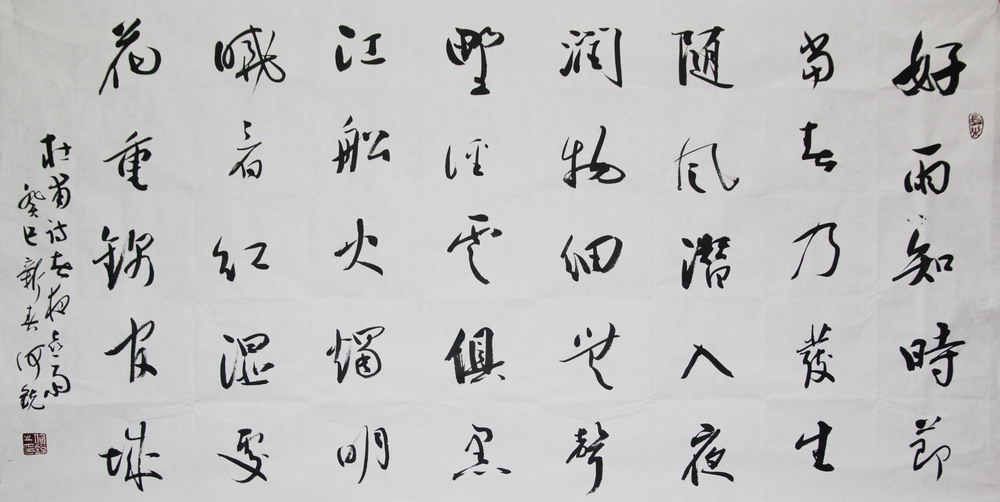 好雨知時節
當春乃發生
随風潛入夜
润物細無聲
野徑雲俱黑
江船火燭明
曉看紅濕處
花重錦官城
杜甫诗春夜喜雨
癸巳新春何鋭